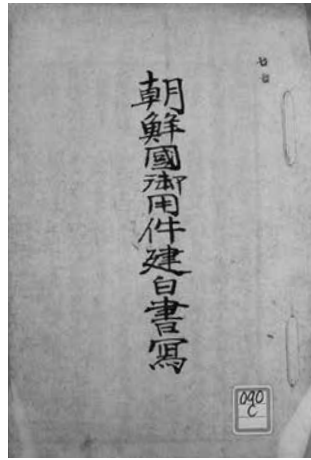 朝鮮國御用件建白書寫
090
C